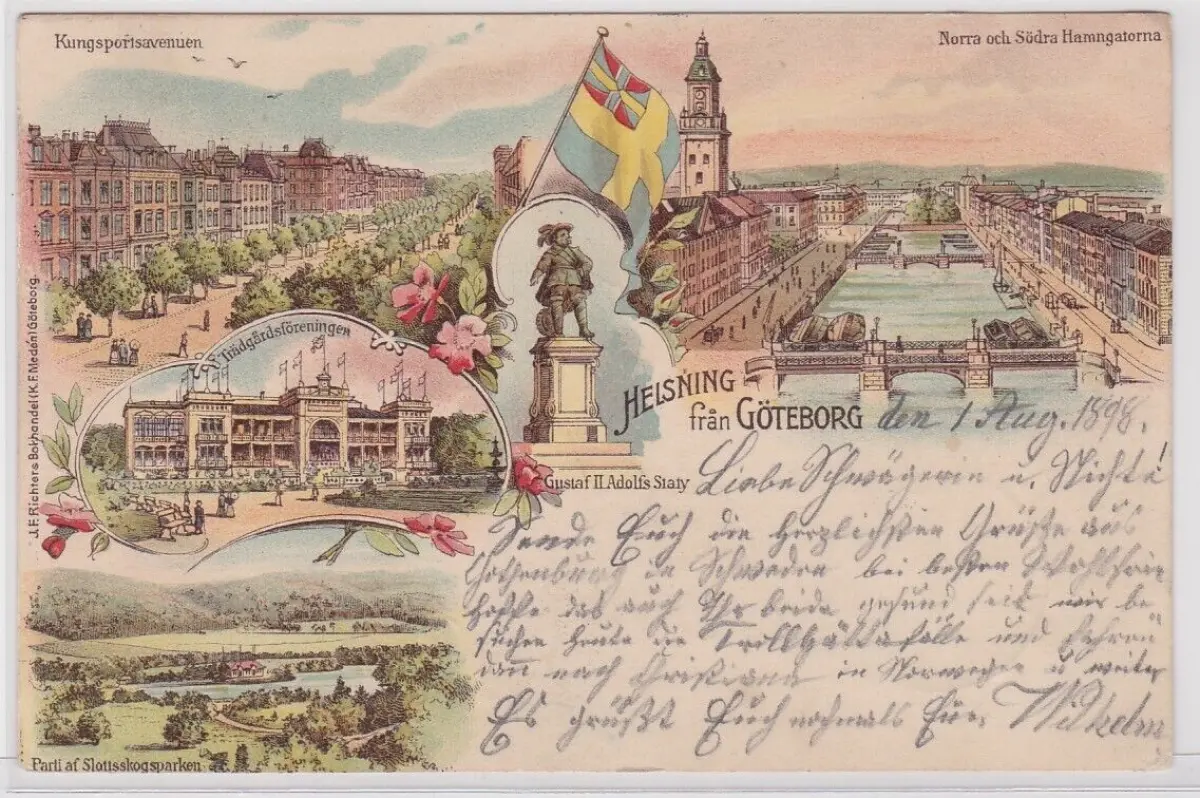 Kungsportsavenuen
Norra och Södra Hamngatorna
J.F. Richters Bokhandel (K.F. Medén) Göteborg.
Trädgårdsföreningen
HELSNING
från GÖTEBORG
den 1 Aug. 1898.
Gustaf II Adolfs Staty
Liebe Schwägerin u. Nichte!
Sende Euch die herzlichsten Grüße aus
Gothenburg in Schweden bei besten Wohlsein
hoffe das auch Ihr beide gesund seit wir be
suchen heute die Trollhättafälle und fahren
dan nach Christiana in Norwegen u weiter
Es grüßt Euch nochmals Euer Wilhelm
Parti af Slottsskogsparken